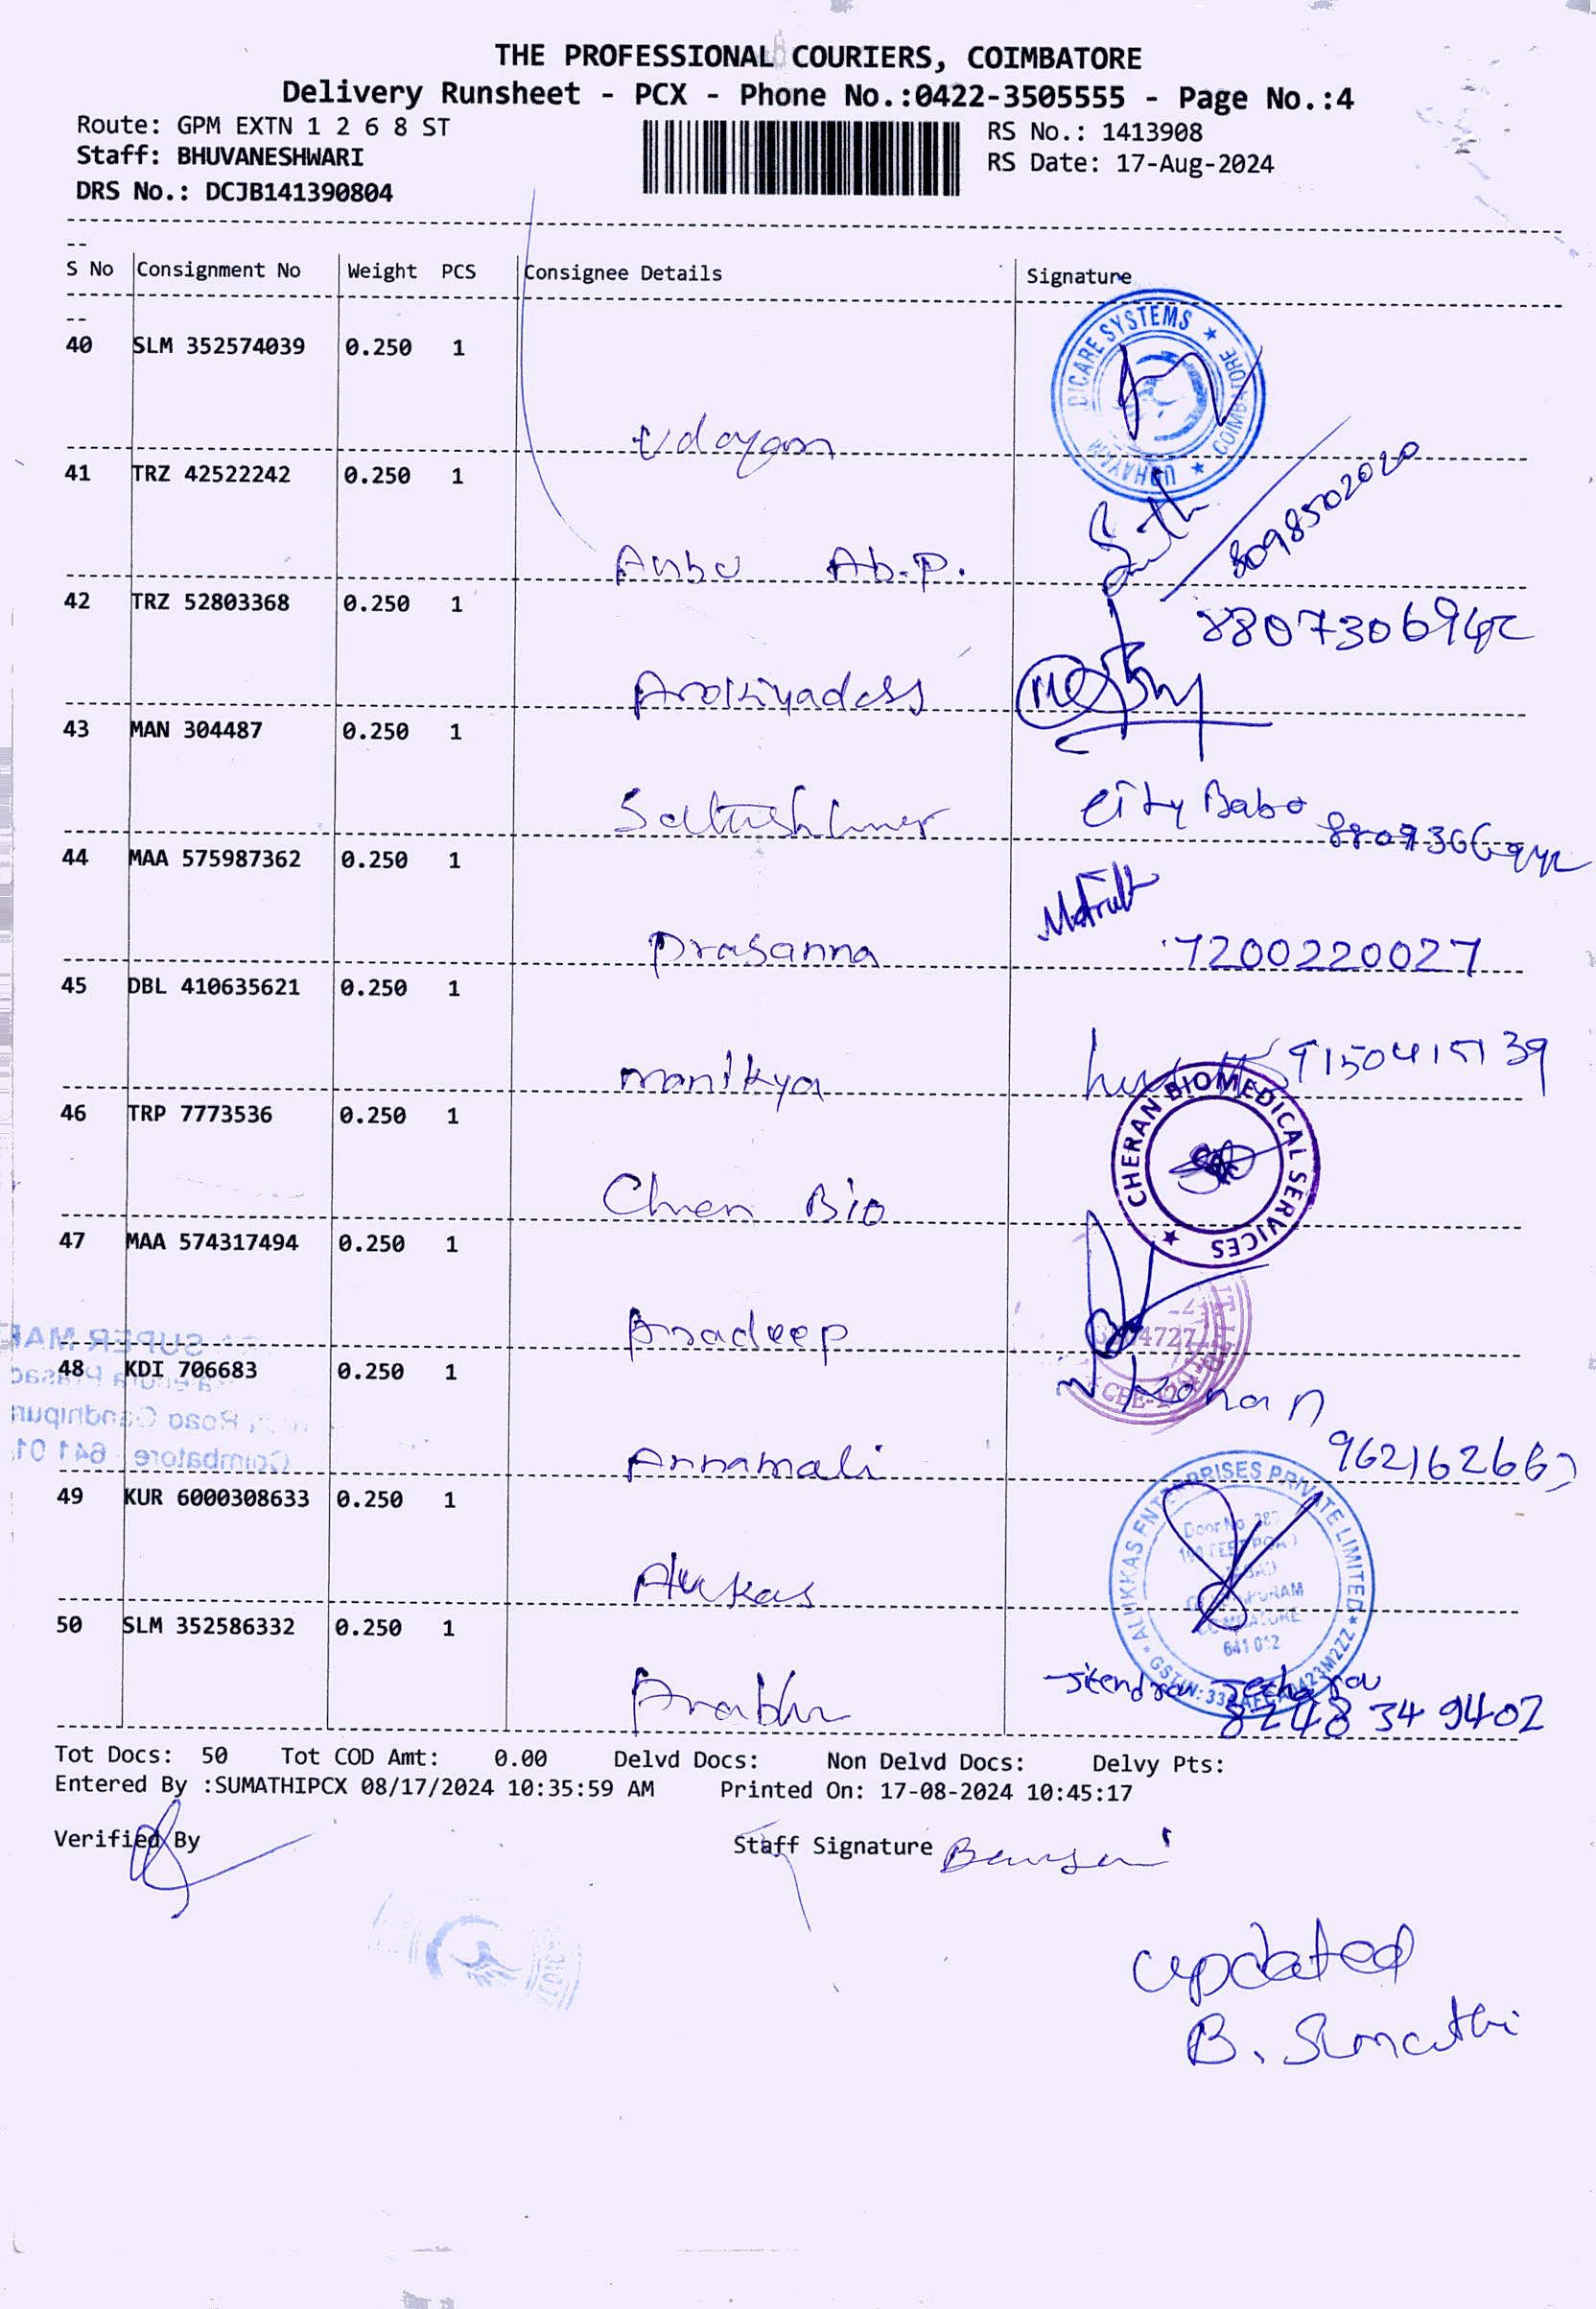 THE PROFESSIONAL COURIERS, COIMBATORE
Delivery Runsheet - PCX - Phone No.:0422-3505555 - Page No.:4
Route: GPM EXTN 1 2 6 8 ST
RS No.: 1413908
Staff: BHUVANESHWARI
RS Date: 17-Aug-2024
DRS No.: DCJB141390804
S No Consignment No Weight PCS Consignee Details Signature
40 SLM 352574039 0.250 1
DICARE SYSTEMS ★ COIMBATORE ★ UDHAYAM
Udayam
41 TRZ 42522242 0.250 1
8098502020
Anbu Ab.P.
42 TRZ 52803368 0.250 1
880730694
Arokiyadass
43 MAN 304487 0.250 1
City Babo
44 MAA 575987362 0.250 1
Prasanna
7200220027
45 DBL 410635621 0.250 1
9150415139
manikya
46 TRP 7773536 0.250 1
CHERAN BIOMEDICAL SERVICES ★
Chren Bio
47 MAA 574317494 0.250 1
Pradeep
4727
SUPER MAR
48 KDI 706683 0.250 1
CBE-
Coimbatore 641 01
Annamali
962162663
49 KUR 6000308633 0.250 1
ALUKKAS ENTERPRISES PRIVATE LIMITED
Door No
641 012
Alukas
50 SLM 352586332 0.250 1
Prabhu
8248349402
Tot Docs: 50 Tot COD Amt: 0.00 Delvd Docs: Non Delvd Docs: Delvy Pts:
Entered By :SUMATHIPCX 08/17/2024 10:35:59 AM Printed On: 17-08-2024 10:45:17
Verified By
Staff Signature
updated
B. Sumathi